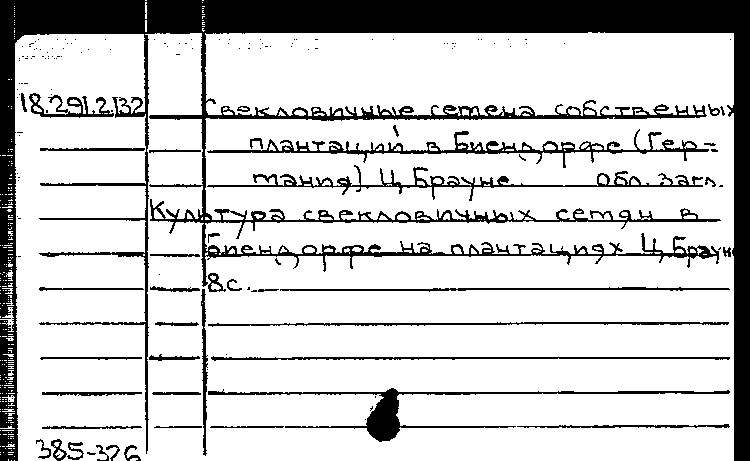 18.291.2132 Свекловичные семена собственных
плантаций в Биендорфе (Гер=
мания) Ц. Брауне. Обл. загл.
Культура свекловичных семян в
Биендорфе на плантациях Ц. Брауне
8с.
385-326